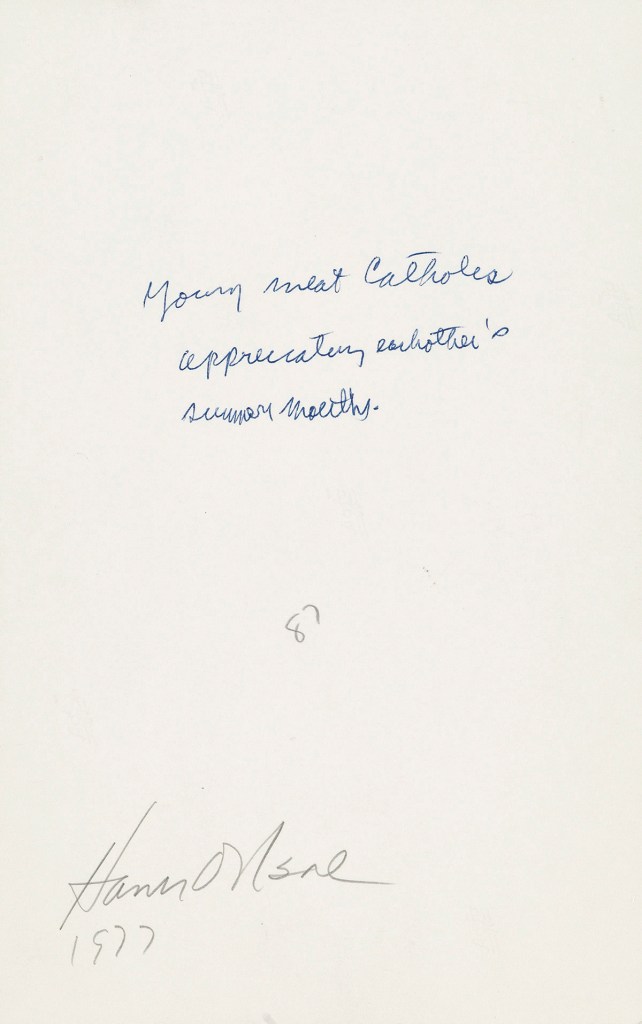 Young meat Catholes
appreciating eachother's
summer mouths.
87
1977